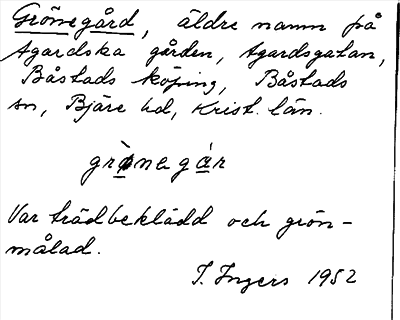 Grönegård, äldre namn på
Agardska gården, Agardsgatan,
Båstads köping, Båstads
sn, Bjäre hd, Krist. län.
grònegár
Var trädbeklädd och grön-
målad.
I. Ingers 1952